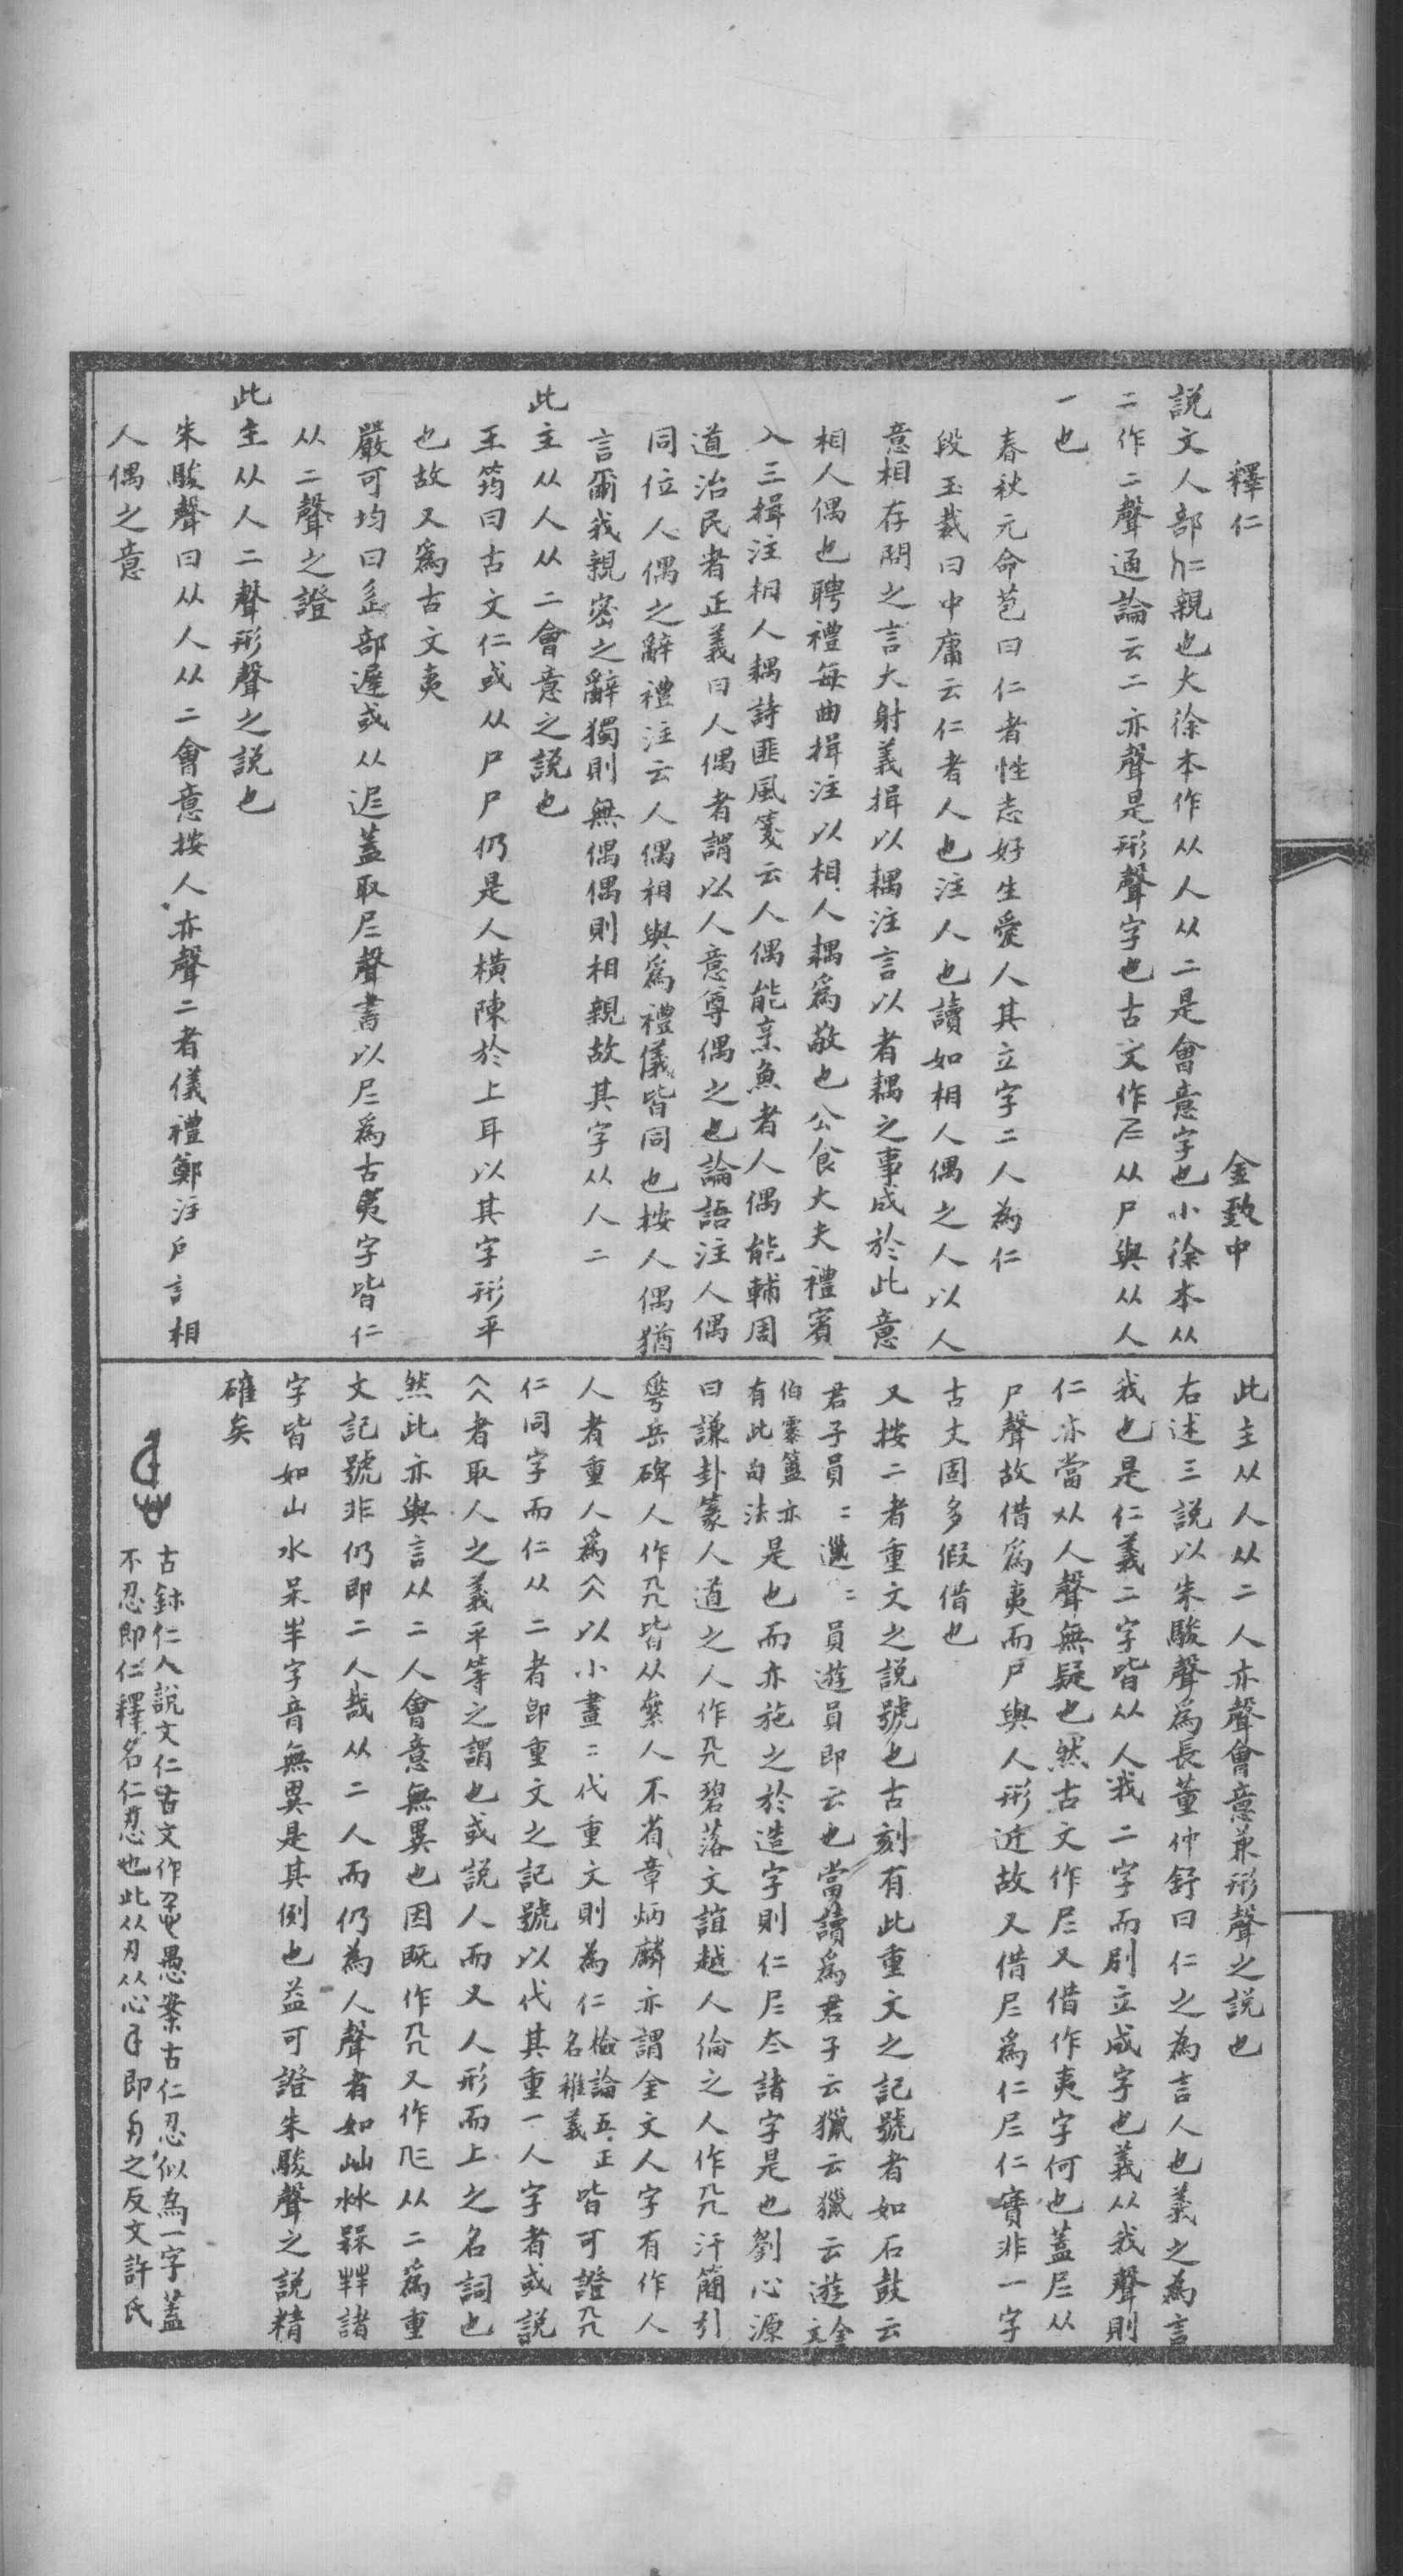 釋仁
金致中
説文人部仁親也大徐本作从人从二是會意字也小徐本从
二作二聲通論云二亦聲是形聲字也古文作𡰥从尸與从人
一也
春秋元命苞曰仁者性志好生愛人其立字二人為仁
段玉裁曰中庸云仁者人也注人也讀如相人偶之人以人
意相存問之言大射義揖以耦注言以者耦之事成於此意
相人偶也聘禮每曲揖注以相人耦爲敬也公食大夫禮賓
入三揖注相人耦詩匪風箋云人偶能亲魚者人偶能輔周
道治民者正義曰人偶者謂以人意尊偶之也論語注人偶
同位人偶之辭禮注云人偶相與爲禮儀皆同也按人偶猶
言爾我親密之辭獨則無偶偶則相親故其字从人二
此主从人从二會意之説也
王筠曰古文仁或从尸尸仍是人横陳於上耳以其字形平
也故又爲古文夷
嚴可均曰辵部遲或从迡蓋取𡰥聲書以𡰥爲古夷字皆仁
从二聲之證
此主从人二聲形聲之説也
朱駿聲曰从人从二會意按人亦聲二者儀禮鄭注戶言相
人偶之意
此主从人从二人亦聲會意兼形聲之説也
右述三説以朱駿聲爲長董仲舒曰仁之為言人也義之為言
我也是仁義二字皆从人我二字而剧立咸字也義从我聲則
仁亦當从人聲無疑也然古文作𡰥又借作夷字何也蓋𡰥从
尸聲故借爲夷而尸與人形近故又借𡰥爲仁𡰥仁實非一字
古文固多假借也
又按二者重文之説號也古刻有此重文之記號者如石鼓云
君子員二邋二員遊員即云也當讀爲君子云獵云獵云遊金文
伯𡩜簠亦有此句法是也而亦施之於造字則仁𡰥夳諸字是也劉心源
曰謙卦篆人道之人作𠔃碧落文誼越人倫之人作𠔃汗簡引
華岳碑人作𠔃皆从絫人不省章炳麟亦謂金文人字有作人
人者重人爲仌以小畫二代重文則為仁檢論五正名雜義皆可證𠔃
仁同字而仁从二者即重文之記號以代其重一人字者或説
仌者取人之義平等之謂也或説人而又人形而上之名詞也
然此亦與言从二人會意無異也因既作𠔃又作仁从二爲重
文記號非仍即二人哉从二人而仍為人聲者如屾沝槑𤘾諸
字皆如山水呆牛字音無異是其例也益可證朱駿聲之説精
確矣
古鉥仁人説文仁古文作忎愚案古仁忍似為一字蓋
不忍即仁釋名仁忍也此从刃从心即之反文許氏